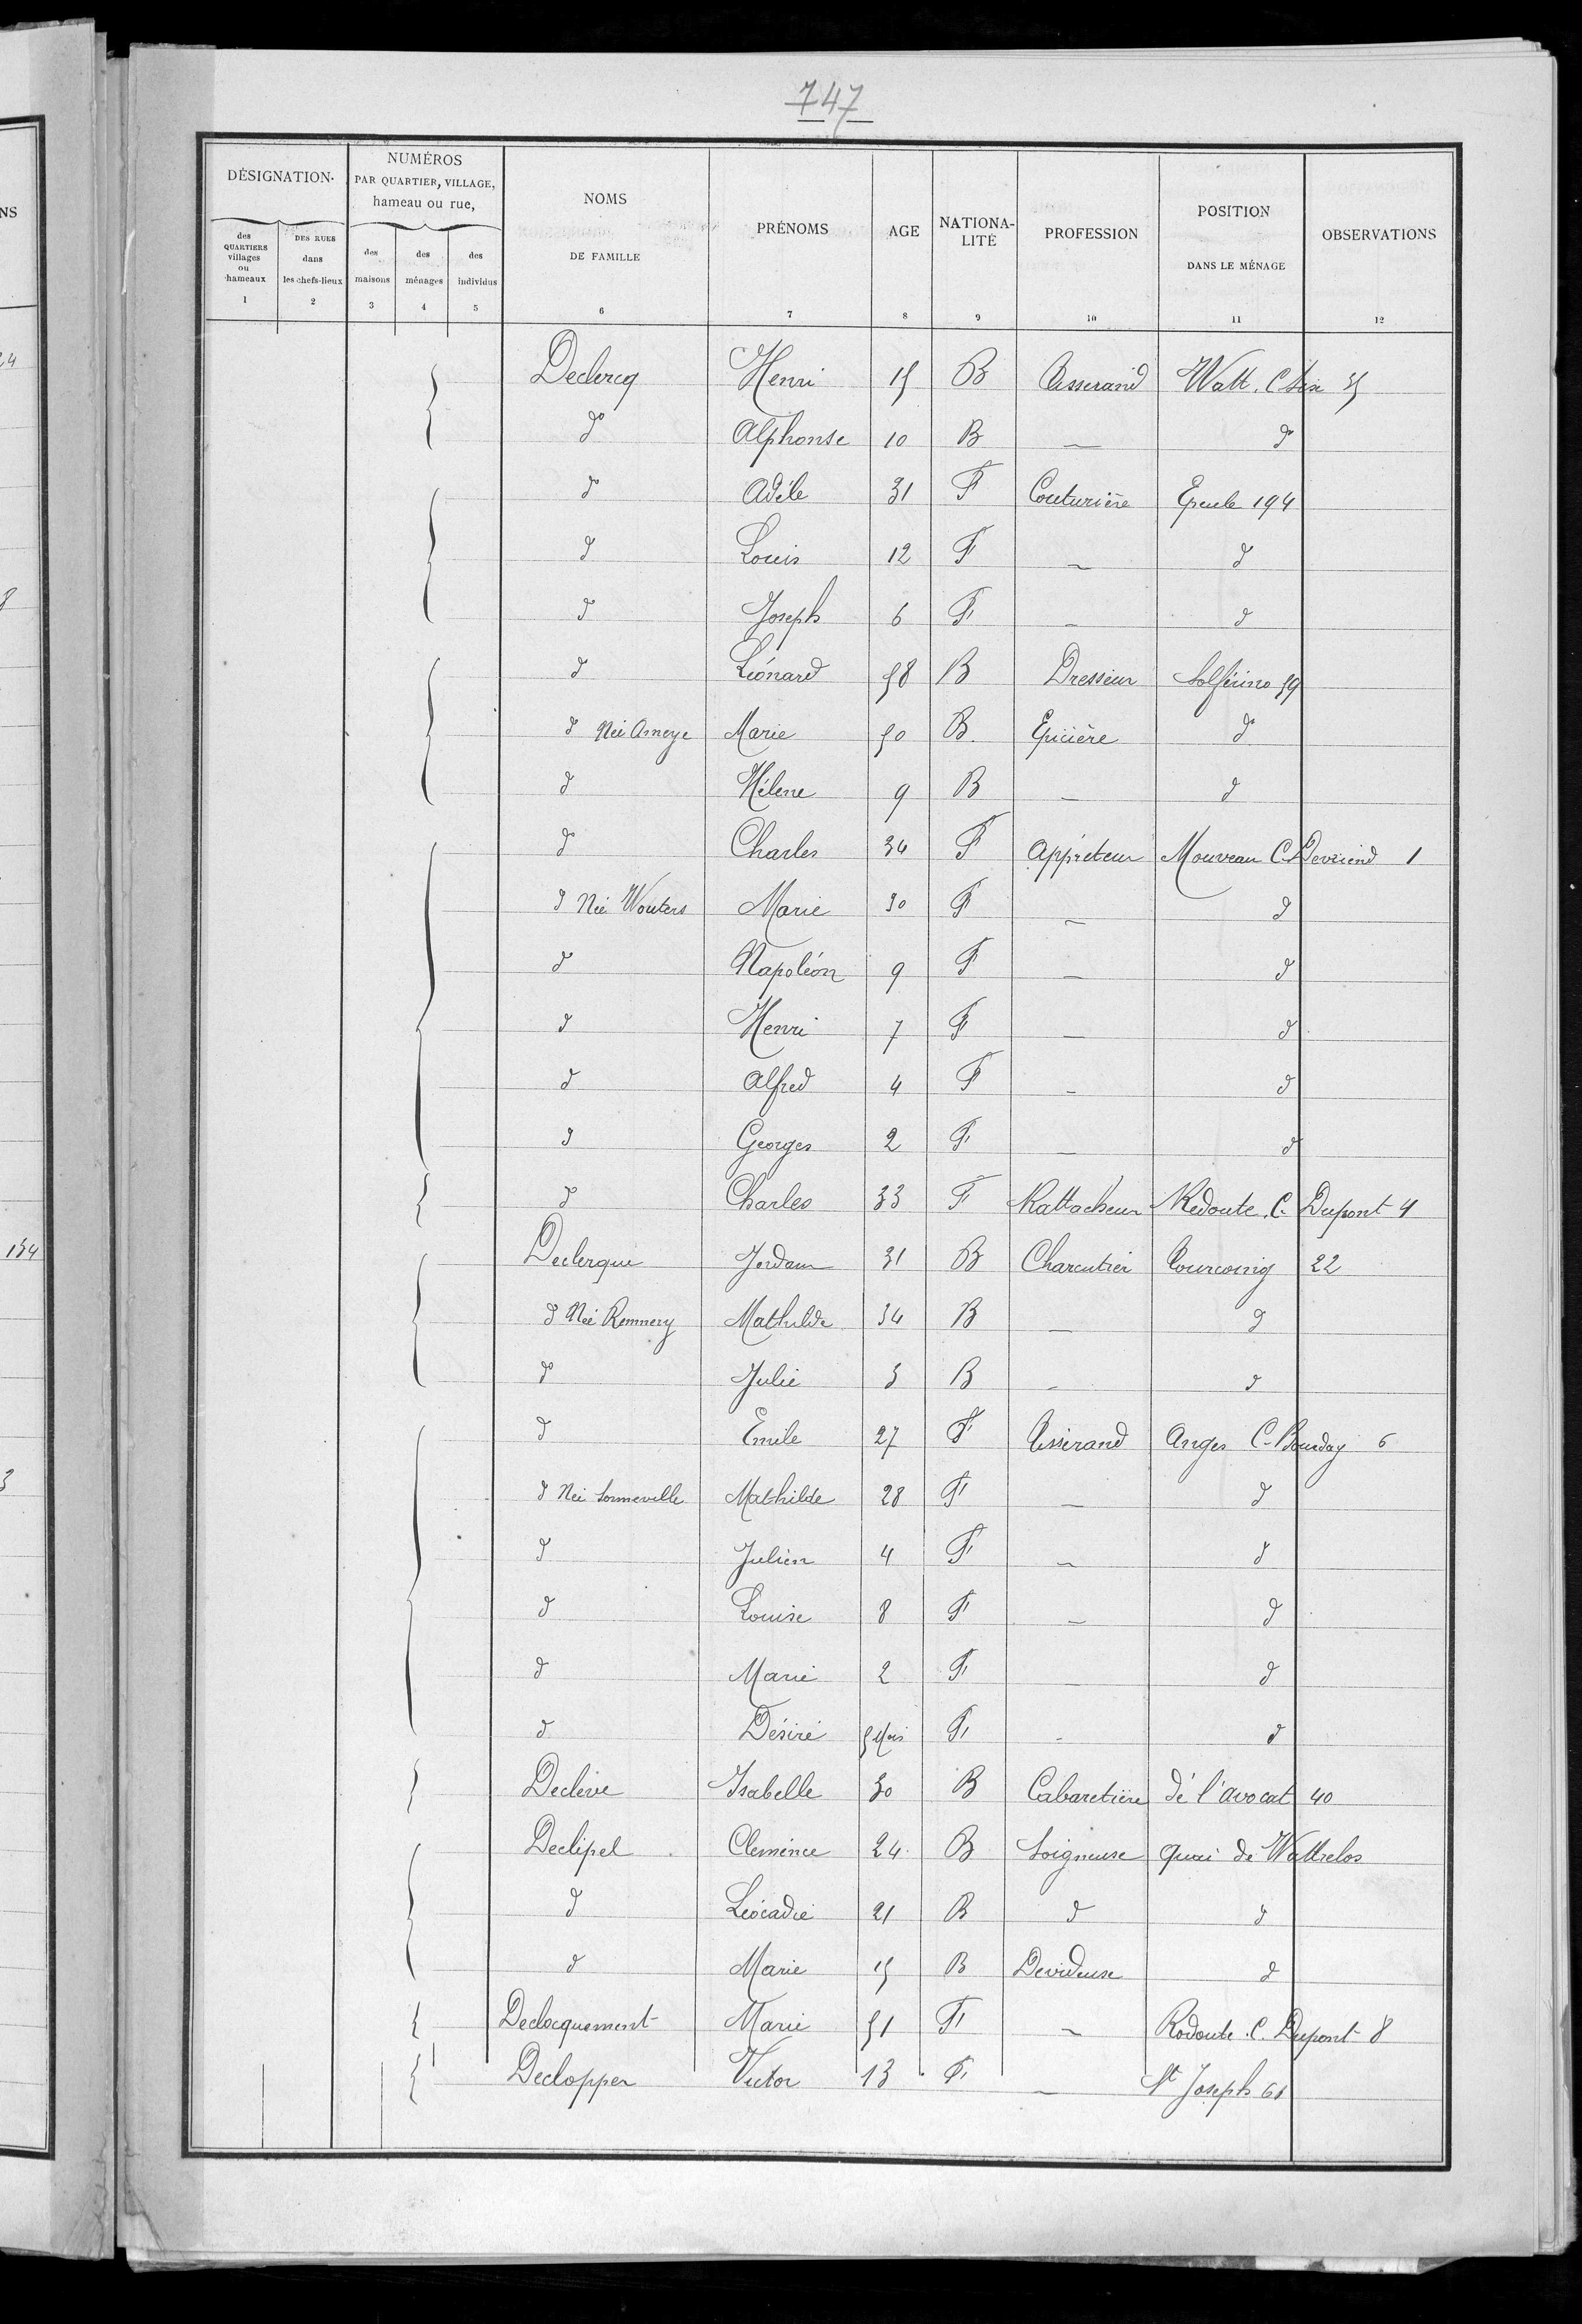 747
DÉSIGNATION
NUMÉROS PAR QUARTIER, VILLAGE, hameau ou rue,
NOMS DE FAMILLE
PRÉNOMS
AGE
NATIONALITÉ
PROFESSION
POSITION DANS LE MÉNAGE
OBSERVATIONS
des QUARTIERS villages ou hameaux
DES RUES dans les chefs-lieux
des maisons
des ménages
des individus
1 2 3 4 5 6 7 8 9 10 11 12
Declercq Henri 15 B Tisserand Watt. C Six 35
do Alphonse 10 B — do
do Adèle 31 F Couturière Epeule 194
d Louis 12 F — d
d Joseph 6 F — d
d Léonard 58 B Dresseur Solférino 59
d Née Ameye Marie 50 B. Epicière do
d Hélène 9 B — d
do Charles 34 F Appreteur Mouveau C. Devriend 1
d Née Wouters Marie 30 F — d
d Napoléon 9 F — d
d Henri 7 F — d
d Alfred 4 F — d
d Georges 2 F — d
do Charles 33 F Rattacheur Redoute. C. Dupont 4
Declerque Jordan 31 B Charcutier Tourcoing 22
d Née Remmery Mathilde 34 B — d
do Julie 3 B — d
d Emile 27 F Tisserand Anges C. Bourday 6
d Née Sonneville Mathilde 28 F — d
d Julien 4 F — d
d Louise 8 F — d
d Marie 2 F — d
d Désiré 5 Mois F - d
Declève Isabelle 30 B Cabaretière de l'avocat 40
Declipel Clemence 24 B Soigneuse quai de Wattrelos
d Léocadie 21 B d d
d Marie 15 B Devideuse d
Declocquement Marie 51 F — Rodoute. C. Dupont 8
Declopper Victor 13 F — St Joseph 61
24
8
134
3
NS